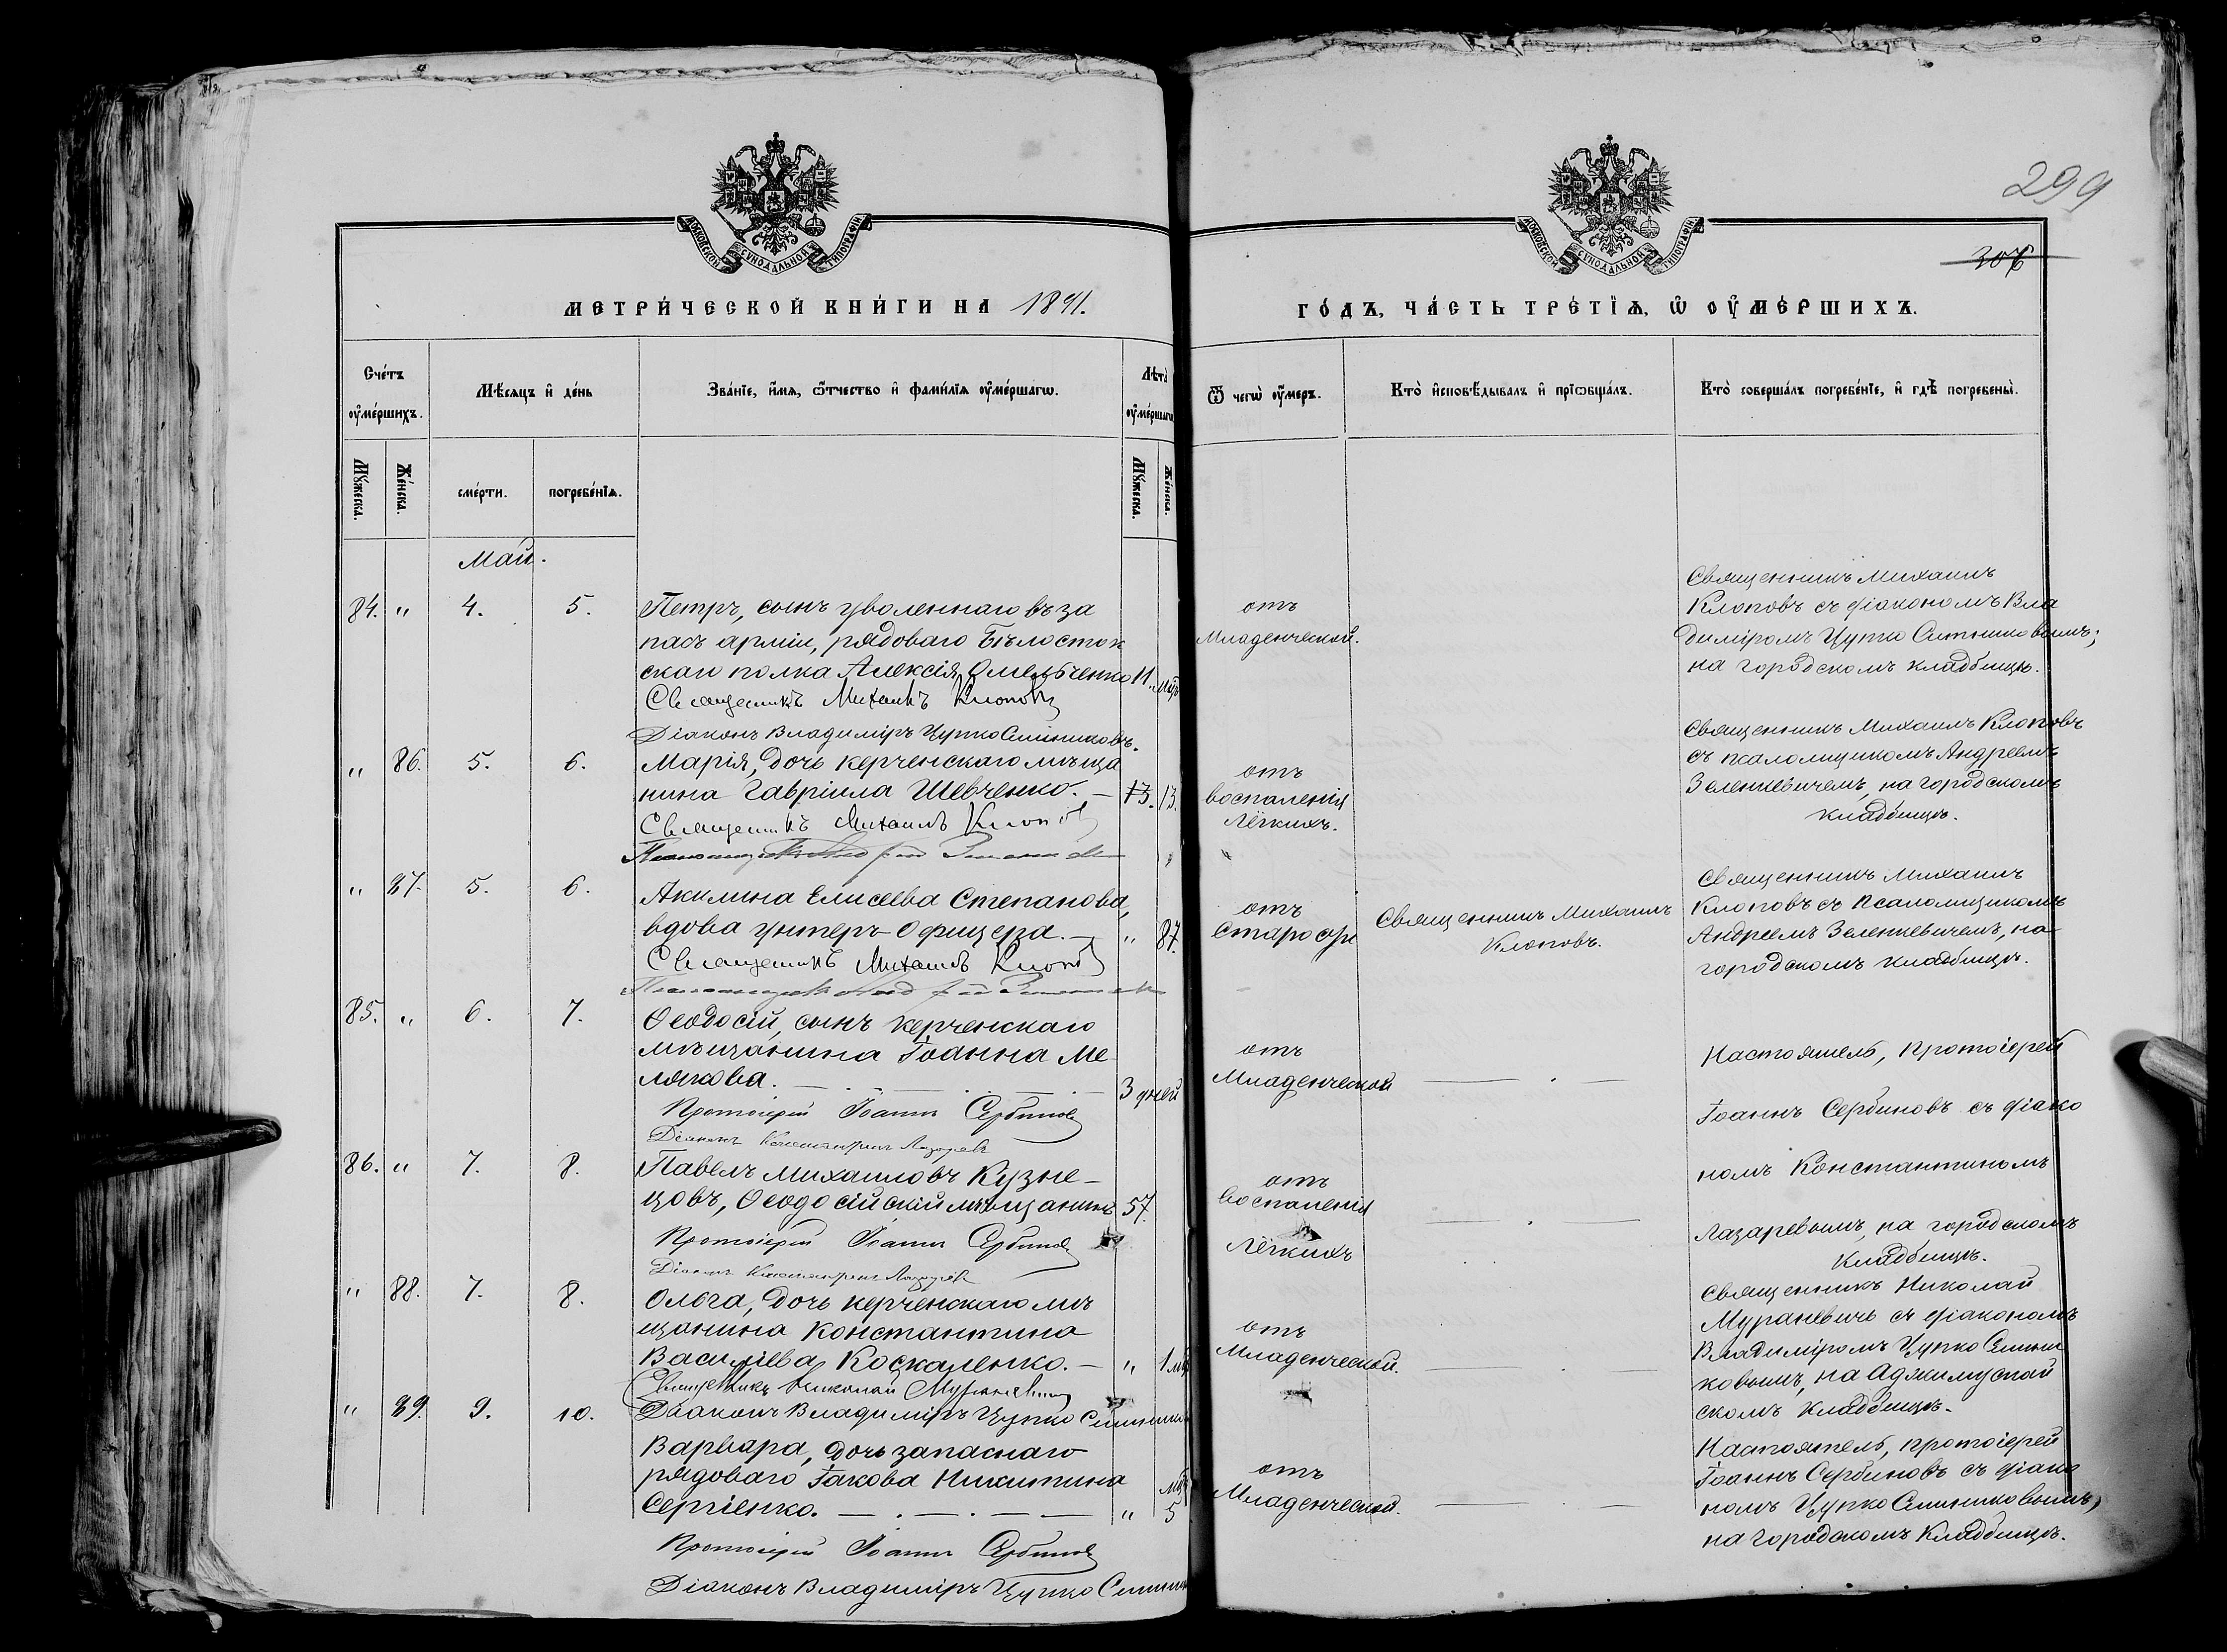 299
307
МОСКОВСКОЙ СУНОДАЛЬНОЙ ТИПОГРАФІИ
МОСКОВСКОЙ СУНОДАЛЬНОЙ ТИПОГРАФІИ
МЕТРИ́ЧЕСКОЙ КНИ́ГИ НА 1891.
ГО́ДЪ, ЧА́СТЬ ТРЕ́ТІѦ, Ѡ ОУМЕ́РШИХЪ.
Сче́тъ оумершихъ.
Мѣсяцъ и де́нь
Зва́нїе, и́мя, ѻтчество и фами́лїя оуме́ршагѡ.
Лѣта̀ оуме́ршагѡ
Ѿ чегѡ̀ оу́меръ.
Кто̀ исповѣ́дывалъ и прїѡбща́лъ.
Кто̀ соверша́лъ погребе́нїе, и гдѣ̀ погребены̀.
Мꙋжеска.
Же́нска.
сме́рти.
погребе́нїѧ.
Мꙋжеска.
Же́нска.
Май.
84. " 4. 5.
Петръ, сынъ уволеннаго въ за
пасъ арміи, рядоваго Бѣлосток
скаго полка Алексія Омельченко 11. мѣс
Священникъ Михаилъ Клоповъ
Діаконъ Владиміръ Цупко Ситниковъ.
отъ
Младенческой.
Священникъ Михаилъ
Клоповъ съ діакономъ Вла
диміромъ Цупко Ситниковымъ;
на городскомъ кладбищѣ.
" 86. 5. 6.
Марія, дочь керченскаго мѣща
нина Гавріила Шевченко. — 13. 13.
Священникъ Михаилъ Клоповъ
отъ
воспаленія
Лёгкихъ.
Священникъ Михаилъ Клоповъ
съ псаломщикомъ Андреемъ
Зеленкевичемъ, на городскомъ
кладбищѣ.
" 87. 5. 6.
Акилина Елисеева Степанова,
вдова унтеръ-Офицера. — " 87.
Священникъ Михаилъ Клоповъ
отъ
Старости
Священникъ Михаилъ
Клоповъ.
Священникъ Михаилъ
Клоповъ съ Псаломщикомъ
Андреемъ Зеленкевичемъ, на
городскомъ кладбищѣ.
85. " 6. 7.
Ѳеодосій, сынъ керченскаго
мѣщанина Іоанна Ме
лякова. 3 дней
Протоіерей Іоаннъ Сербиновъ
Діаконъ Константинъ Лазаревъ
отъ
Младенческой
Настоятель, Протоіерей
Іоаннъ Сербиновъ съ діако
номъ Константиномъ
Лазаревымъ, на городскомъ
Кладбищѣ.
86. " 7. 8.
Павелъ Михаиловъ Кузне-
цовъ, Ѳеодосійскій мѣщанинъ 57.
Протоіерей Іоаннъ Сербиновъ
Діаконъ Константинъ Лазаревъ
отъ
Воспаленія
Лёгкихъ
" 88. 7. 8.
Ольга, дочь керченскаго мѣ
щанина Константина
Васильева Коскаленко. — " 1 мѣс
Священникъ Николай Мураневичъ
Діаконъ Владиміръ Цупко Ситников
отъ
Младенческой.
Священникъ Николай
Мураневичъ съ діакономъ
Владиміромъ Цупко Ситни
ковымъ, на Аджимушкай
скомъ Кладбищѣ.
" 89. 9. 10.
Варвара, дочь запаснаго
рядоваго Іакова Никитина
Сергіенко. " 5 мѣс
Протоіерей Іоаннъ Сербиновъ
Діаконъ Владиміръ Цупко Ситник
отъ
Младенческой.
Настоятель, протоіерей
Іоаннъ Сербиновъ съ діако
номъ Цупко Ситниковымъ,
на городскомъ Кладбищѣ.